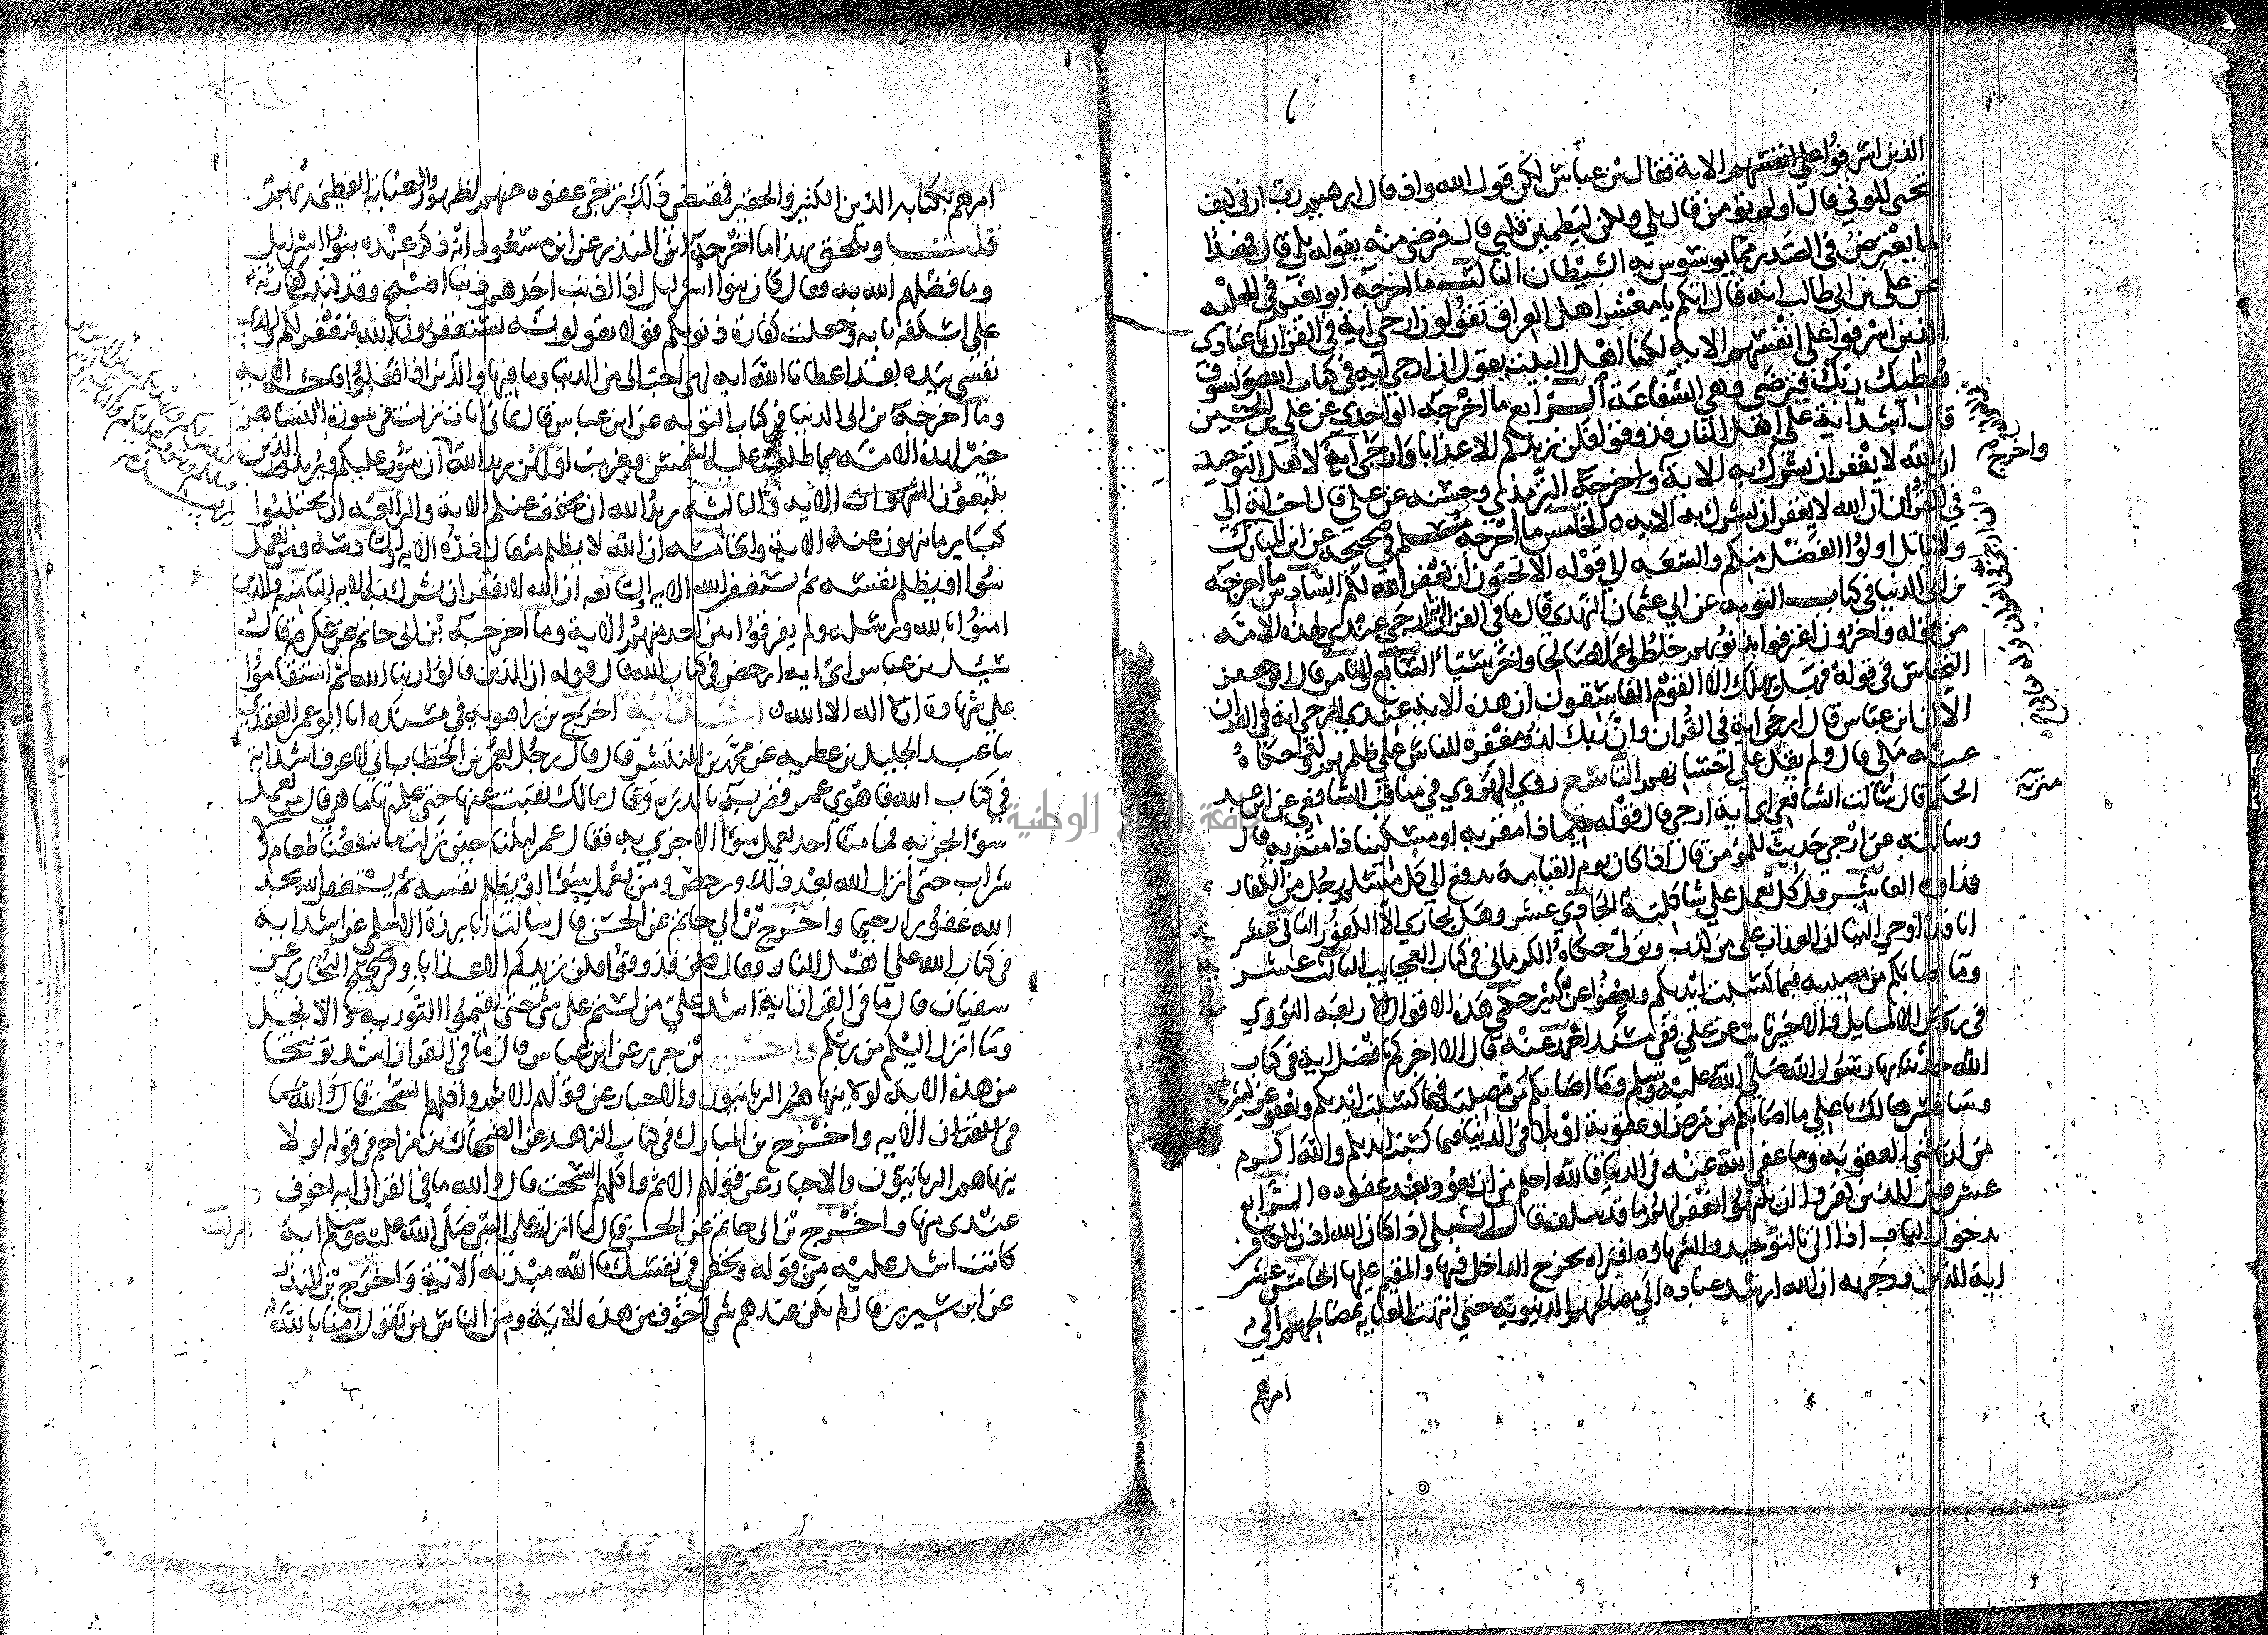 الذين اسرفوا علي انفسهم الاية فقال بن عباس لكن قول الله واذ قال ابرهيم رب ارني كيف
تحيي الموتي قال اولم تومن قال بلي ولكن ليطمين قلبي قال فرضي منه بقوله بلي قال فهذا
لما يعترض في الصدر مما يوسوس به الشيطان الثالث ما اخرجه ابو نعيم في الحليه
عن علي بن ابي طالب انه قال انكم يا معشر اهل العراق تقولون ارجي اية في القران يا عبادي
الذين اسرفوا علي انفسهم الايه لكنا اهل البيت نقول ان ارجي ايه في كتاب الله ولسوف
يعطيك ربك فترضي وهي الشفاعة الرابع ما اخرجه الواحدي عن علي بن الحسين
قال اشد اية علي اهل النار فذوقوا فلن نزيدكم الا عذابا وارجي اية لاهل التوحيد
ان الله لا يغفر ان يشرك به الاية واخرجه الترمذي وحسنه عن علي قال احب اية الي
في القران ان الله لا يغفر ان يشرك به الايه الخامس ما اخرجه مسلم في صحيحه عن ابن المبارك
ولا ياتل اولوا الفضل منكم والسعه الي قوله الا تحبون ان يغفر الله لكم السادس ما اخرجه
بن ابي الدنيا في كتاب التوبه عن ابي عثمان النهدي قال ما في القران اية ارجي عندي لهذه الامه
من قوله واخرون اعترفوا بذنوبهم خلطوا عملا صالحا واخر سيئا السابع والثامن قال ابو جعفر
النحاس في قوله فهل يهلك الا القوم الفاسقون ان هذه الاية عندي ارجي اية في القران
الا ان ابن عباس قال ارجي اية في القران وان ربك لذو مغفرة للناس علي ظلمهم وكذا حكاه
عنه مكي قال ولم يقل علي احسانهم التاسع روي الهروي في مناقب الشافعي عن ابن عبد
الحكم قال سألت الشافعي اي اية ارجي قال قوله يتيما ذا مقربه او مسكينا ذا متربه قال
وسالته عن ارجي حديث للمومن قال اذا كان يوم القيامة يدفع الي كل مسلم رجل من الكفار
فداوه العاشر قل كل يعمل علي شاكلته الحادي عشر وهل يجازي الا الكفور الثاني عشر
انا قد اوحي الينا ان العذاب علي من كذب وتولي حكاه الكرماني في كتاب العجايب الثالث عشر
وما اصابكم من مصيبه فبما كسبت ايديكم ويعفوا عن كثير حكي هذه الاقوال الاربعه النووي
في رؤس المسايل والاخير ثابت عن علي ففي مسند احمد عنه قال الا اخبركم بافضل اية في كتاب
الله حدثنا بها رسول الله صلي الله عليه وسلم وما اصابكم من مصيبة فبما كسبت ايديكم ويعفو عن كثير
وسافسرها لك يا علي ما اصابكم من مرض او عقوبة او بلا في الدنيا فبما كسبت ايديكم والله اكرم
من ان يثني العقوبه وما عفي الله عنه في الدنيا فالله احلم من ان يعود بعد عفوه الرابع
عشر قل للذين كفروا ان ينتهوا يغفر لهم ما قد سلف قال الشبلي اذا كان الله اذن للكافر
بدخول الباب اذا اتي بالتوحيد والشهاده افتراه يخرج الداخل فيها والمقيم عليها الخامس عشر
اية الدين ووجهه ان الله ارشد عباده الي مصالحهم الدنيويه حتي انتهت العنايه بمصالحهم الي
امرهم
امرهم بكتابه الدين الكثير والحقير فمقتضي ذلك ترجي عفوه عنهم لظهور العنايه العظيمه بهم
قلت ويلحق بهذا ما اخرجه ابن المنذر عن ابن مسعود انه ذكر عنده بنوا اسرايل
وما فضلهم الله به فقال كان بنوا اسرايل اذا اذنب احدهم ذنبا اصبح وقد كتبت كفارته
علي اسكفة بابه وجعلت كفارة ذنوبكم قولا تقولونه تستغفرون الله فيغفر لكم والذي
نفسي بيده لقد اعطانا الله ايه لهي احب الي من الدنيا وما فيها والذين اذا فعلوا فاحشه الايه
وما اخرجه بن ابي الدنيا في كتاب التوبه عن ابن عباس قال ثماني ايات نزلت في سورة النسا هن
خير لهذه الامه مما طلعت عليه الشمس وغربت اولهن يريد الله ان يتوب عليكم ويريد الذين
يتبعون الشهوات الايه والثالثه يريد الله ان يخفف عنكم الاية والرابعه ان تجتنبوا
كباير ما تنهون عنه الاية والخامسه ان الله لا يظلم مثقال ذره الايه والسادسه ومن يعمل
سوا او يظلم نفسه ثم يستغفر الله الايه والسابعه ان الله لا يغفر ان يشرك به الايه والثامنه والذين
امنوا بالله ورسله ولم يفرقوا بين احد منهم الاية وما اخرجه بن ابي حاتم عن عكرمه قال
سئل بن عباس اي ايه ارخص في كتاب الله قال قوله ان الذين قالوا ربنا الله ثم استقاموا
علي شهادة ان لا اله الا الله اشد اية اخرج بن راهويه في مسنده انا ابو عمر العقدي
نا عبد الجليل بن عطيه عن محمد بن المنتشر قال قال رجل لعمر بن الخطاب اني لاعرف اشد اية
في كتاب الله فاهوي عمر فضربه بالدره وقال مالك نقبت عنها حتي علمتها ما هي قال من يعمل
سوا يجز به فما منا احد يعمل سوا الا جزي به فقال عمر لبثنا حين نزلت ما ينفعنا طعام ولا
شراب حتي انزل الله بعد ذلك ورخص ومن يعمل سوا او يظلم نفسه ثم يستغفر الله يجد
الله غفورا رحيما واخرج بن ابي حاتم عن الحسن قال سالت ابا برزة الاسلمي عن اشد اية
في كتاب الله علي اهل النار فقال فذوقوا فلن نزيدكم الا عذابا وفي صحيح البخاري عن
سفيان قال ما في القران اية اشد علي من لستم علي شي حتي تقيموا التوريه والانجيل
وما انزل اليكم من ربكم واخرج بن جرير عن ابن عباس قال ما في القران اشد توبيخا
من هذه الاية لولا ينهاهم الربانيون والاحبار عن قولهم الاثم واكلهم السحت قال والله ما
في القران الايه واخرج بن المبارك في كتاب الزهد عن الضحاك بن مزاحم في قوله لولا
ينهاهم الربانيون والاحبار عن قولهم الاثم واكلهم السحت قال والله ما في القران ايه اخوف
عندي منها واخرج بن ابي حاتم عن الحسن قال ما انزلت علي النبي صلي الله عليه وسلم اية
كانت اشد عليه من قوله وتخفي في نفسك ما الله مبديه الاية واخرج بن المنذر
عن ابن سيرين قال لم يكن عندهم شي اخوف من هذه الاية ومن الناس من يقول امنا بالله